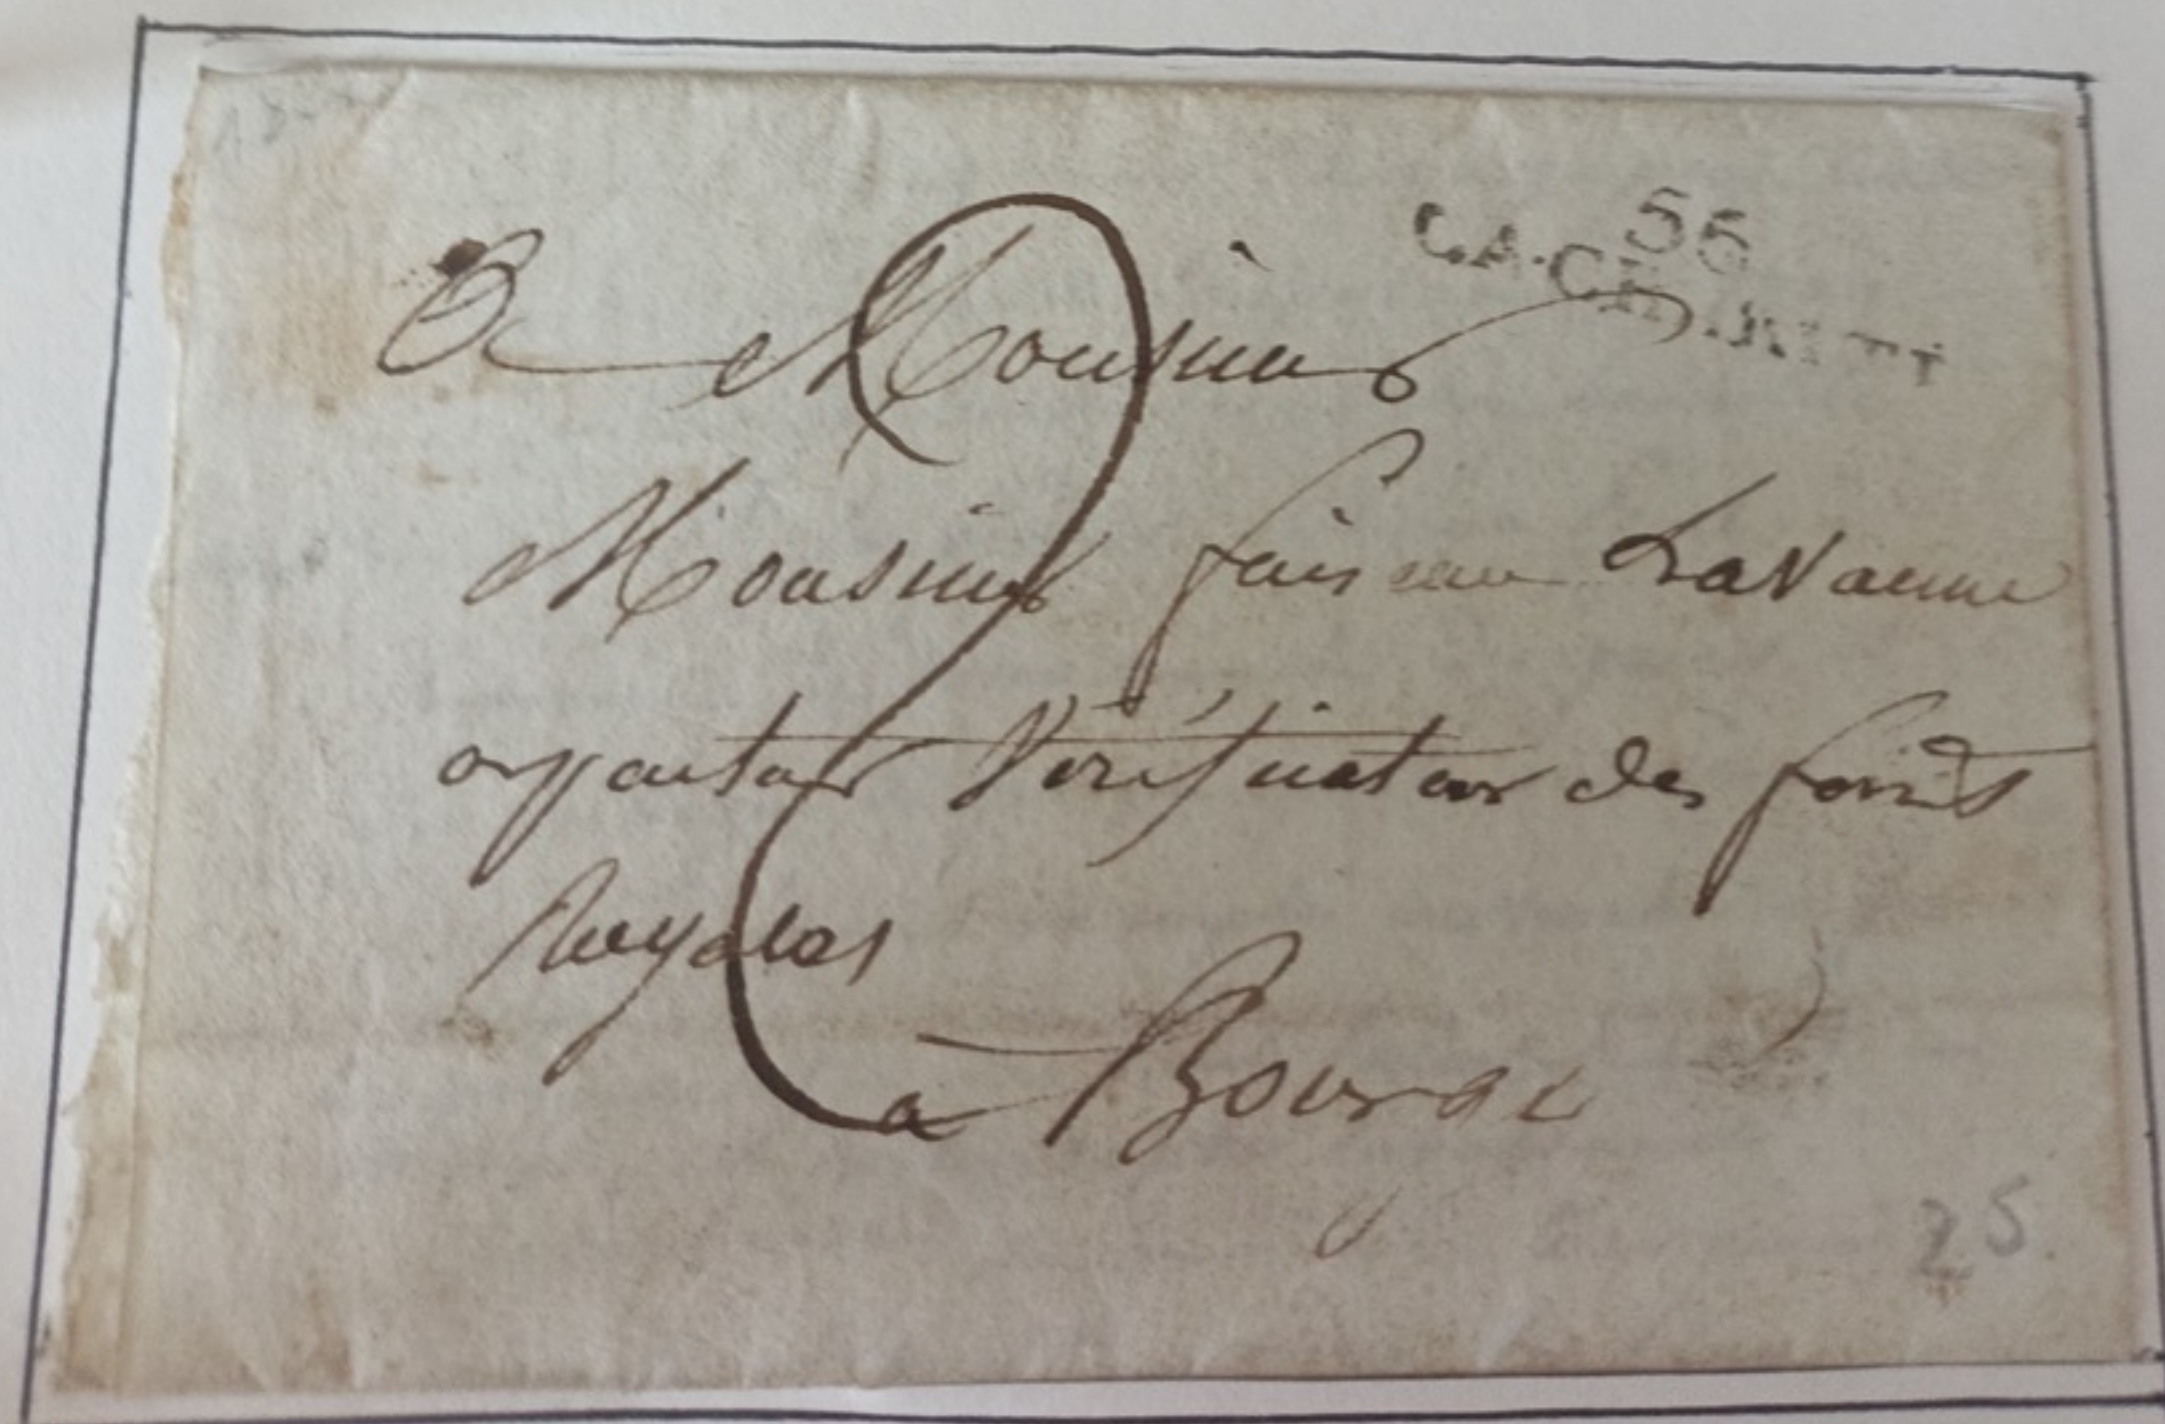 56
LA-CHARITÉ
A Monsieur
Monsieur LaVanne
arpenteur Vérificateur des forêts
Royales
à Bourges
2
25